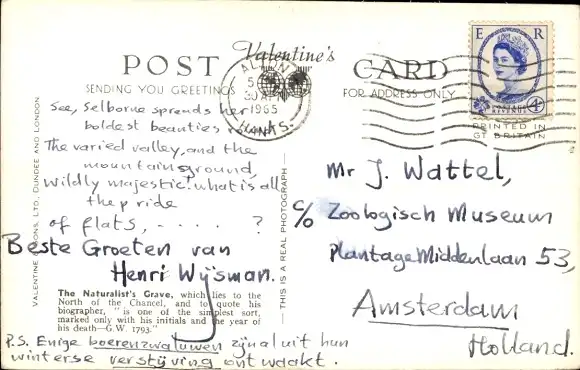 POST Valentine's CARD
SENDING YOU GREETINGS
FOR ADDRESS ONLY
ALTON
30 AP
1965
HANTS.
E R
POSTAGE
REVENUE
4D
PRINTED IN
GT BRITAIN
See, Selborne spreads her
boldest beauties round
The varied valley, and the
mountain ground,
wildly majestic! what is all
the pride
of flats, - . - . - . ?
Beste Groeten van
Henri Wijsman.
The Naturalist's Grave, which lies to the
North of the Chancel, and to quote his
biographer, "is one of the simplest sort,
marked only with his initials and the year of
his death—G.W. 1793."
P.S. Enige boerenzwaluwen zijn al uit hun
winterse verstijving ontwaakt.
VALENTINE & SONS, LTD., DUNDEE AND LONDON
THIS IS A REAL PHOTOGRAPH
Mr J. Wattel,
c/o Zoologisch Museum
Plantage Middenlaan 53,
Amsterdam
Holland.